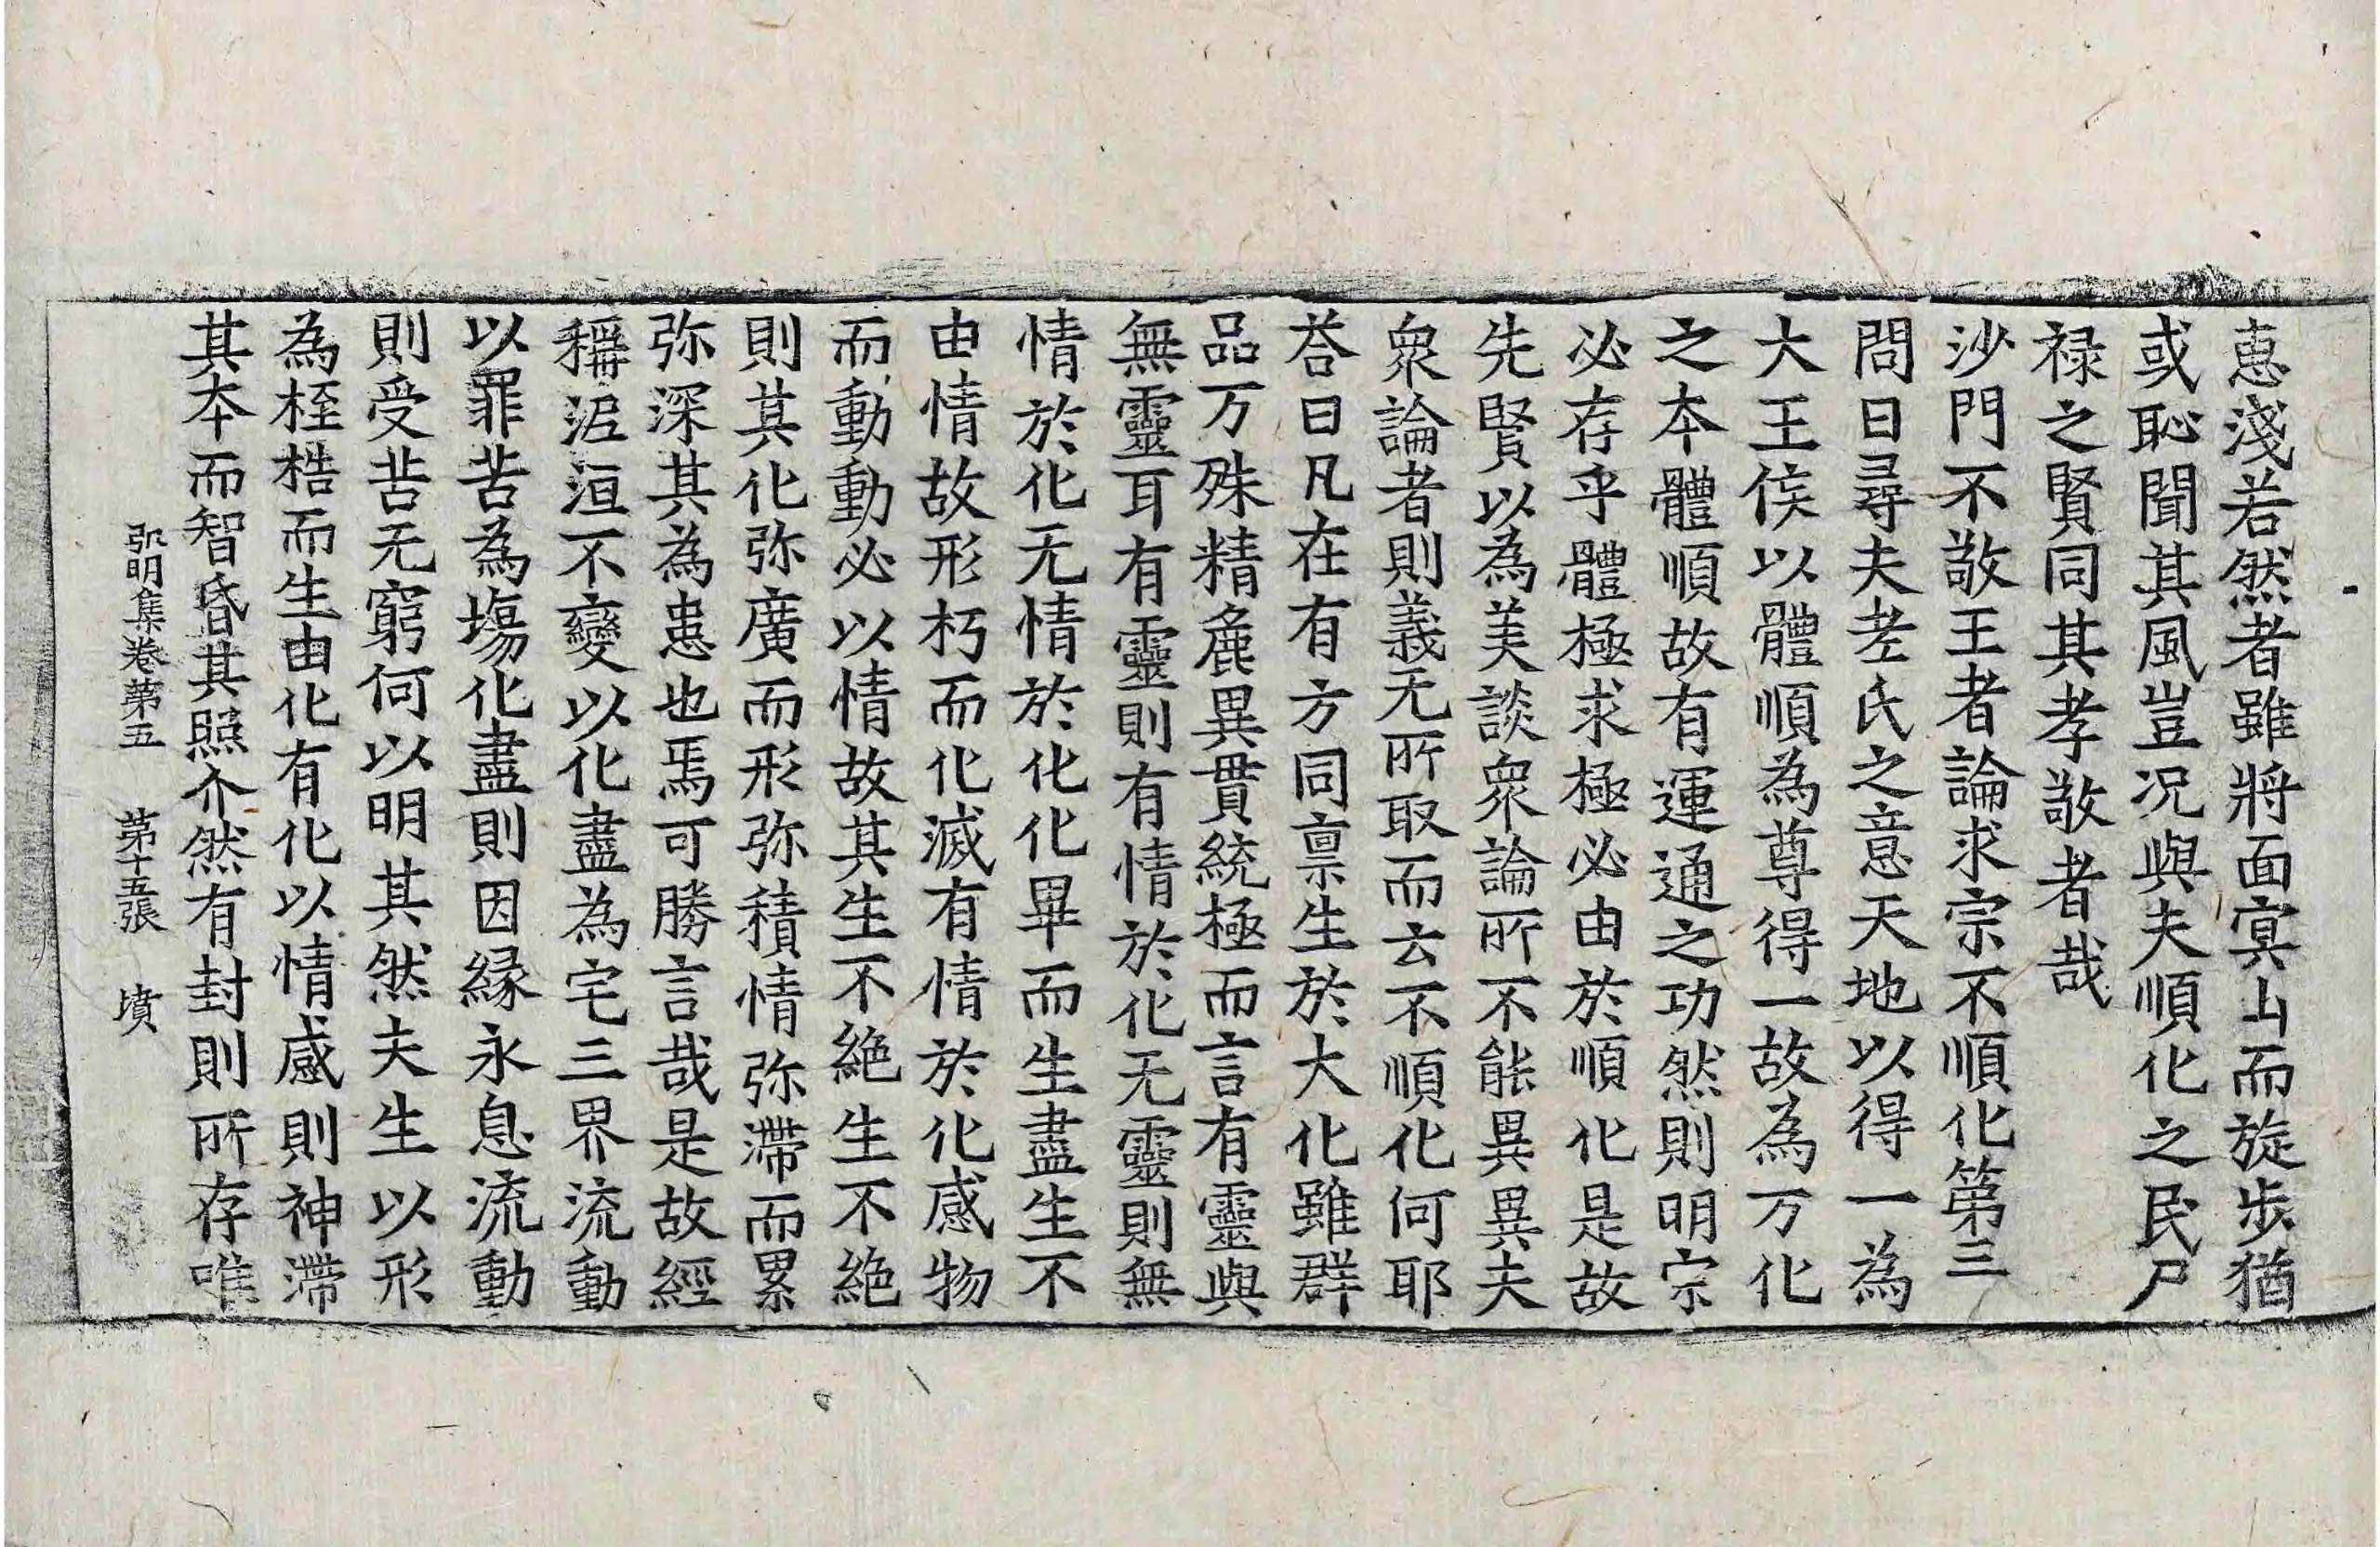 惠淺若然者雖將面㝠山而旋步猶
或恥聞其風豈況與夫順化之民尸
禄之賢同其孝敬者哉
沙門不敬王者論求宗不順化第三
問曰尋夫老氏之意天地以得一為
大王侯以體順為尊得一故為万化
之本體順故有運通之功然則明宗
必存乎體極求極必由於順化是故
先賢以為美談衆論所不能異異夫
衆論者則義无所取而云不順化何耶
荅曰凡在有方同禀生於大化雖群
品万殊精麁異貫統極而言有靈與
無靈耳有靈則有情於化无靈則無
情於化无情於化化畢而生盡生不
由情故形朽而化滅有情於化感物
而動動必以情故其生不絶生不絶
則其化弥廣而形弥積情弥滯而累
弥深其為患也焉可勝言哉是故經
稱泥洹不變以化盡為宅三界流動
以罪苦為場化盡則因緣永息流動
則受苦无窮何以明其然夫生以形
為桎梏而生由化有化以情感則神滯
其本而智昏其照介然有封則所存唯
弘明集卷第五　第十五張　墳